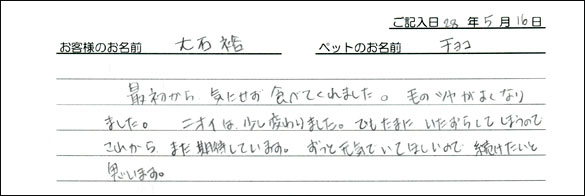 ご記入日 28 年 5 月 16 日
お客様のお名前 大石 裕 ペットのお名前 チョコ
最初から 気にせず 食べてくれました。 毛のツヤがよくなり
ました。 ニオイは 少し変わりました。でもたまに いたずらしてしまうので
これから、また 期待しています。 ずっと元気でいてほしいので 続けたいと
思います。